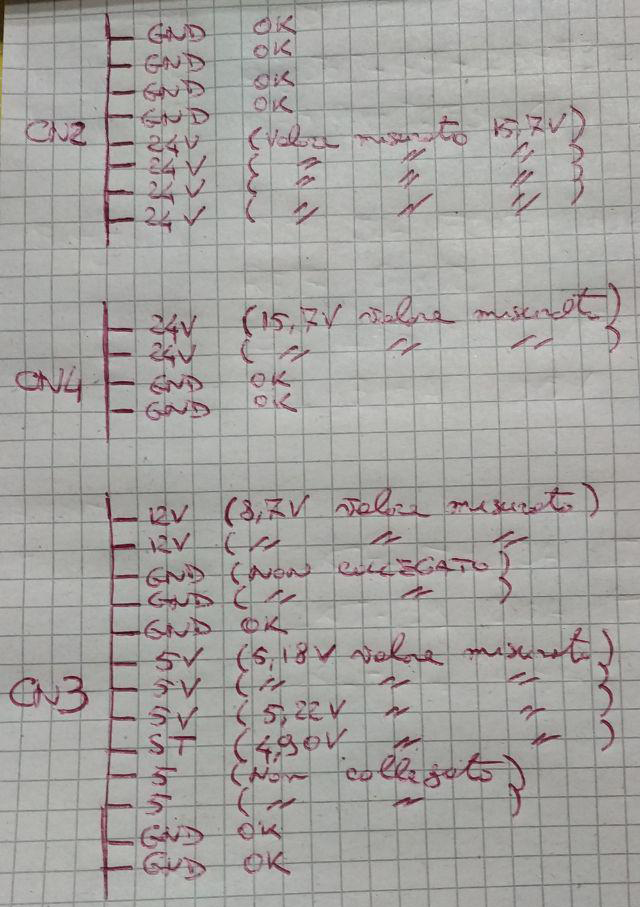 GND OK
GND OK
GND OK
GND OK
CN2
24V (Valore misurato 15,7V)
24V ( " " " )
24V ( " " " )
24V ( " " " )
24V (15,7V valore misurato)
24V ( " " " )
CN4
GND OK
GND OK
12V (8,7V valore misurato)
12V ( " " " )
GND (NON COLLEGATO)
GND ( " " )
GND OK
5V (5,18V valore misurato)
CN3
5V ( " " " )
5V (5,22V " " )
ST (4,90V " " )
5 (Non collegato)
5 ( " " )
GND OK
GND OK